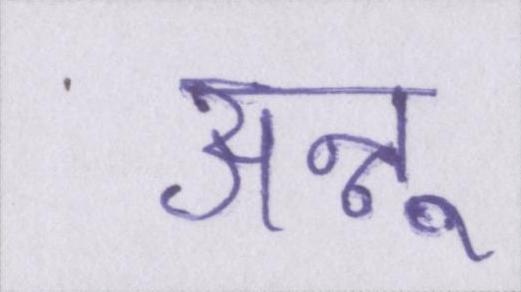 अन्नू